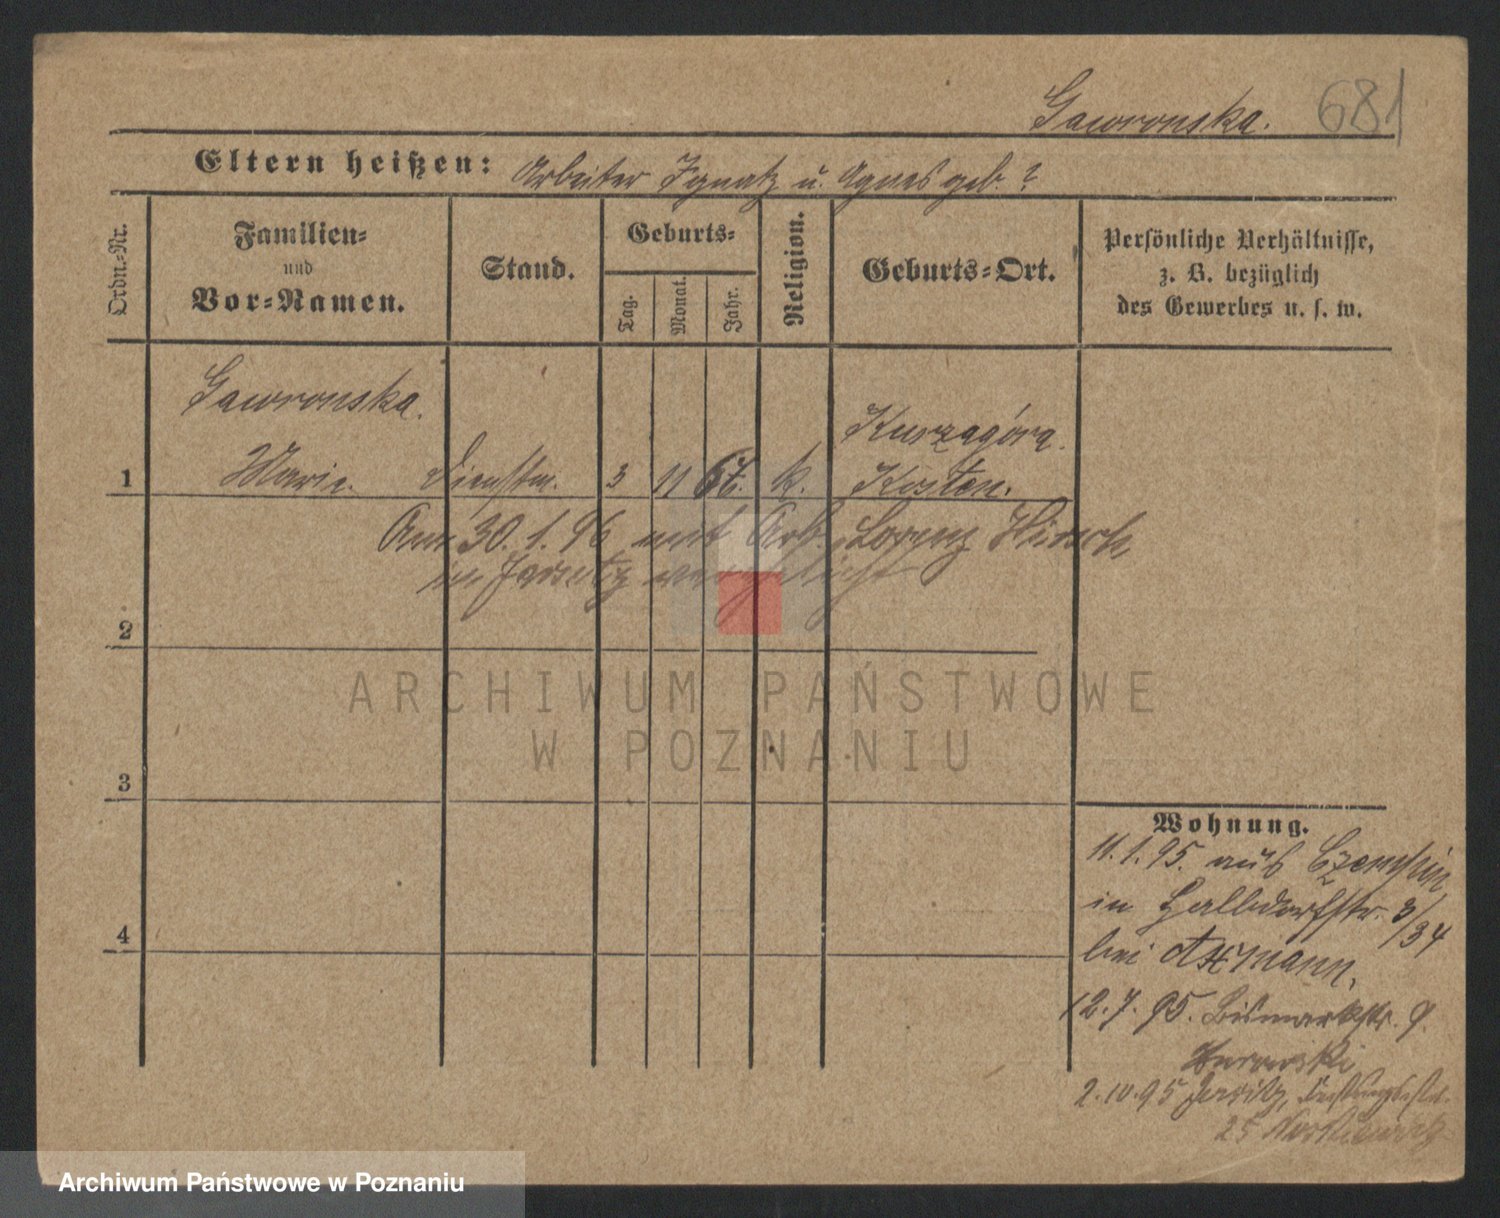 Gawronska.
681
Eltern heißen: Arbeiter Ignatz u. Agnes geb. ?
Ordn.-Nr.
Familien-
und
Vor-Namen.
Stand.
Geburts-
Tag.
Monat.
Jahr.
Religion.
Geburts-Ort.
Persönliche Verhältnisse,
z. B. bezüglich
des Gewerbes u. s. w.
Gawronska.
Kurzagóra.
1 Marie. Dienstm. 3 11 67. k. Kosten.
Am 30.1.96 mit Arb. Lorenz
in Jersitz verehelicht
2
ARCHIWUM PAŃSTWOWE
W POZNANIU
3
Wohnung.
11.1.95. aus Czempin
in Halbdorfstr. 3/34
bei
12.7.95. Bismarckstr. 9.
Zurawski
2.10.95 Jersitz,
25
4
Archiwum Państwowe w Poznaniu